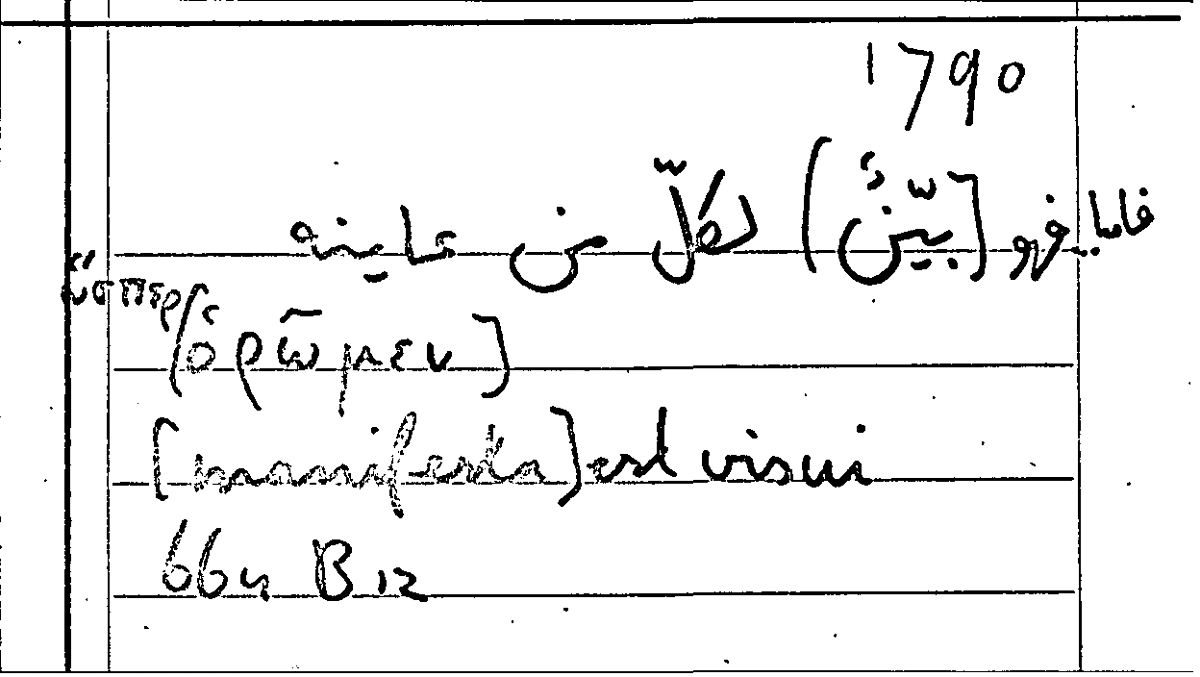 1790
فهو [بيّنٌ] لكلّ من عاينه
ὥσπερ [ὁρῶμεν]
[manifesta] est visui
664 B 12